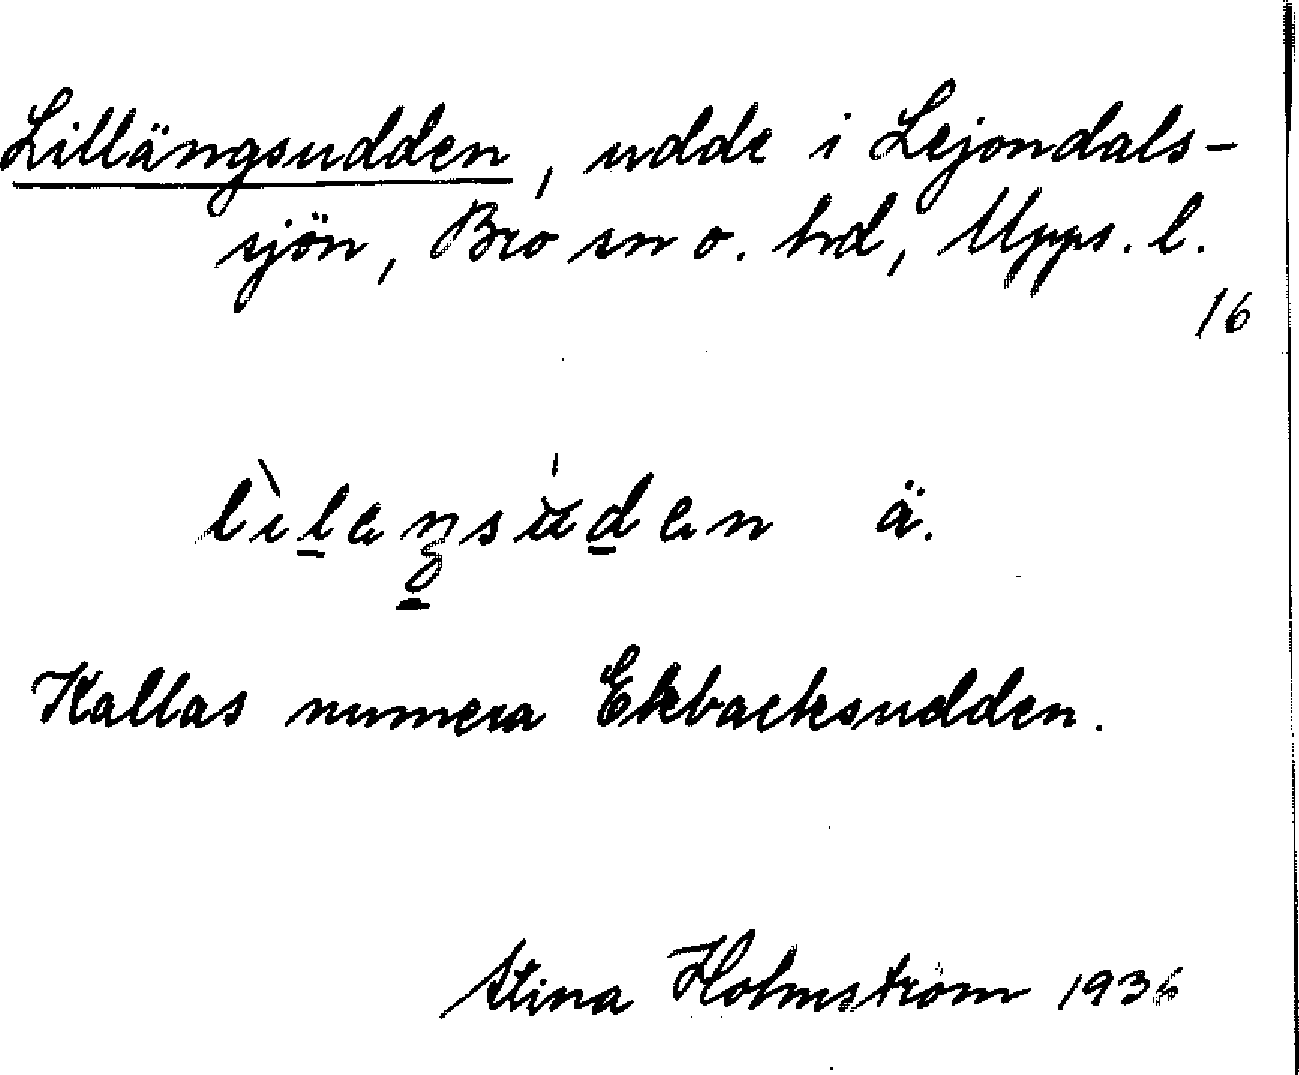 Lillängsudden, udde i Lejondals-
sjön, Bro sn o. hd, Upps. l.
16
ä.
Kallas numera Ekbacksudden.
Stina Holmström 1936